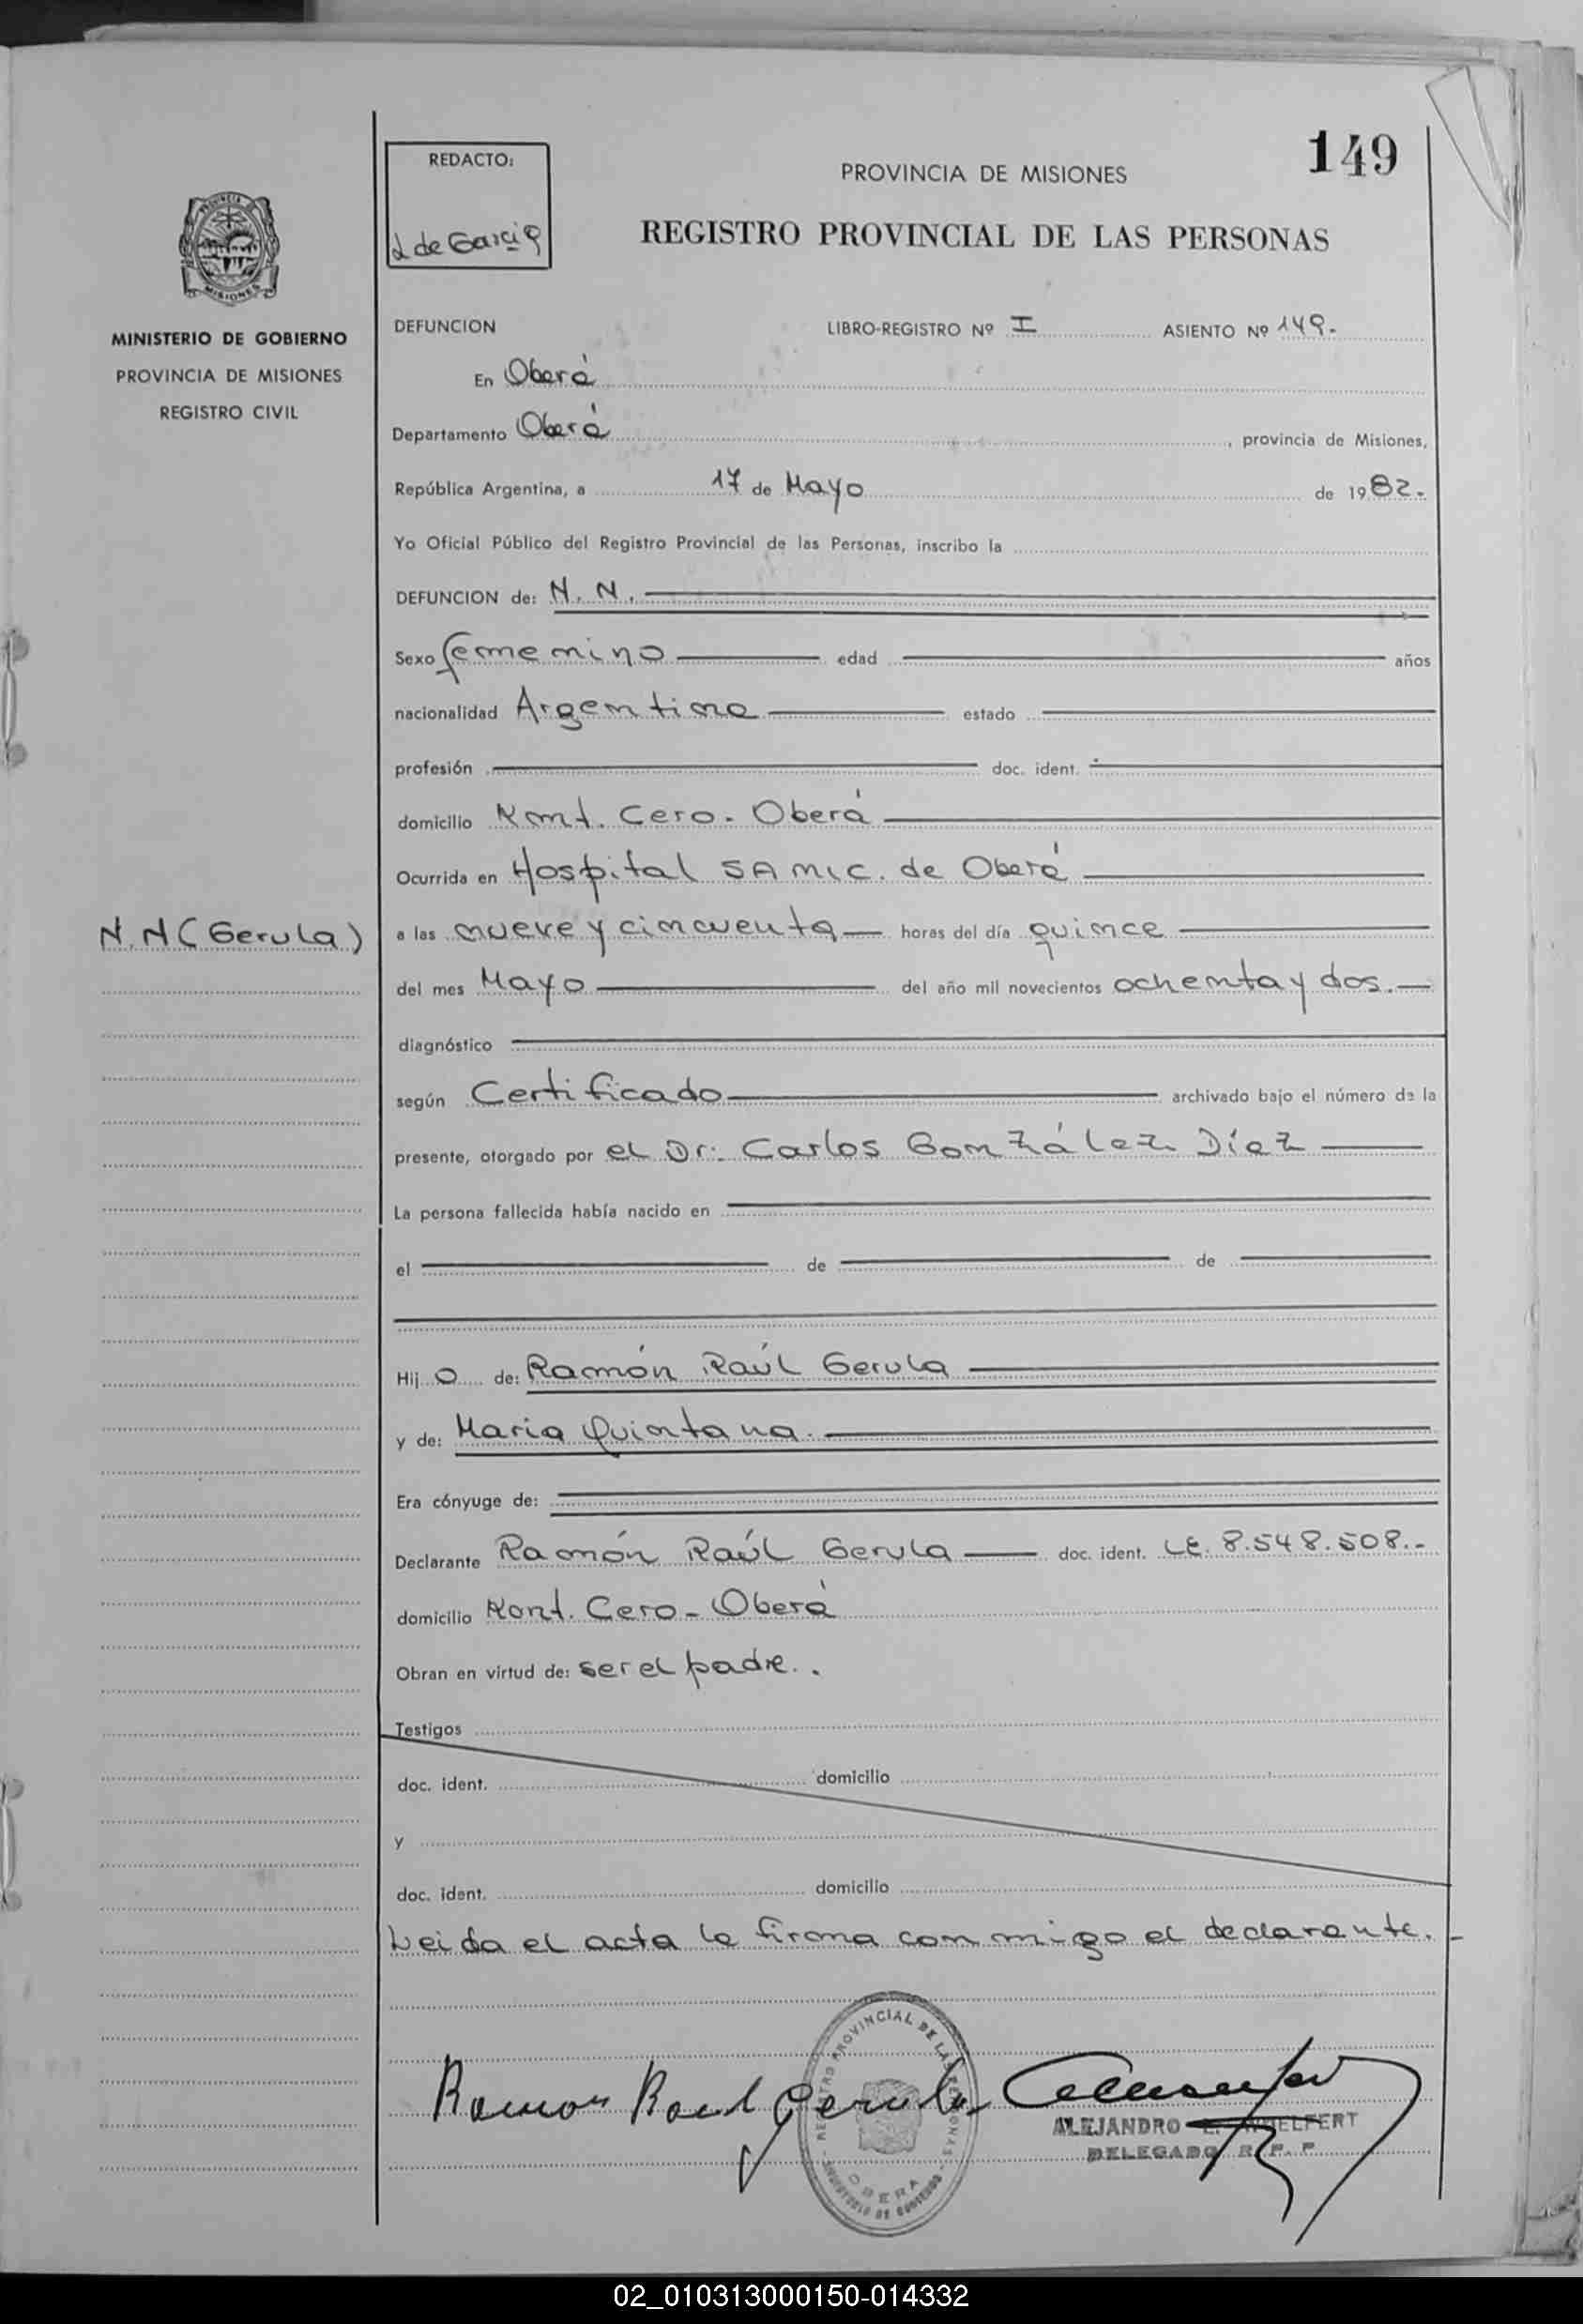 149
REDACTO:
L de Garcia
PROVINCIA DE MISIONES
REGISTRO PROVINCIAL DE LAS PERSONAS
MISIONES
MINISTERIO DE GOBIERNO
PROVINCIA DE MISIONES
REGISTRO CIVIL
DEFUNCION LIBRO-REGISTRO Nº I ASIENTO Nº 149.-
En Oberá
Departamento Oberá, provincia de Misiones,
República Argentina, a 17 de Mayo de 1982.-
Yo Oficial Público del Registro Provincial de las Personas, inscribo la
DEFUNCION de: N. N.
Sexo femenino edad años
nacionalidad Argentina estado
profesión doc. ident.
domicilio Kmt. Cero - Oberá
Ocurrida en Hospital SAMIC. de Oberá
N.N (Gerula)
a las nueve y cincuenta horas del día quince
del mes Mayo del año mil novecientos ochenta y dos.
diagnóstico
según Certificado archivado bajo el número de la
presente, otorgado por el Dr: Carlos González Díaz
La persona fallecida había nacido en
el de de
Hij o de: Ramón Raúl Gerula
y de: Maria Quintana.
Era cónyuge de:
Declarante Ramón Raúl Gerula doc. ident. LE. 8.548.508.-
domicilio Kmt. Cero - Oberá
Obran en virtud de: ser el padre.
Testigos
doc. ident. domicilio
y
doc. ident. domicilio
Leida el acta la firma conmigo el declarante.-
REGISTRO PROVINCIAL DE LAS PERSONAS
OBERA
Ramon Raul Gerula
ALEJANDRO
DELEGADO R. P. P.
02_010313000150-014332